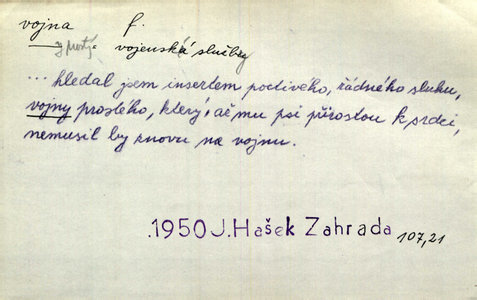 vojna f.
vojenská služba
... hledal jsem insertem poctivého, řádného sluhu,
vojny prostého, který, ač mu psi přirostou k srdci,
nemusil by znovu na vojnu.
.1950 J. Hašek Zahrada 107,21